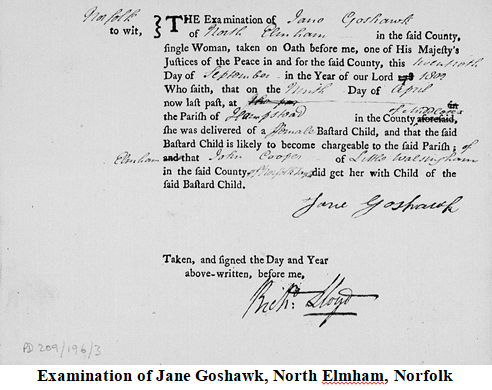 Norfolk
to wit,
THE Examination of Jane Goshawk
of North Elmham in the said County,
single Woman, taken on Oath before me, one of His Majesty's
Justices of the Peace in and for the said County, this twentieth
Day of September in the Year of our Lord 1802
Who saith, that on the Ninth Day of April
now last past, at in
the Parish of Hampstead in the County aforesaid, of Middlesex
she was delivered of a Female Bastard Child, and that the said
Bastard Child is likely to become chargeable to the said Parish; of
Elmham and that John Cooper of Little Walsingham
in the said County of Norfolk did get her with Child of the
said Bastard Child.
Jane Goshawk
Taken, and signed the Day and Year
above-written, before me,
Richd. Lloyd
PD 209/196/3
Examination of Jane Goshawk, North Elmham, Norfolk